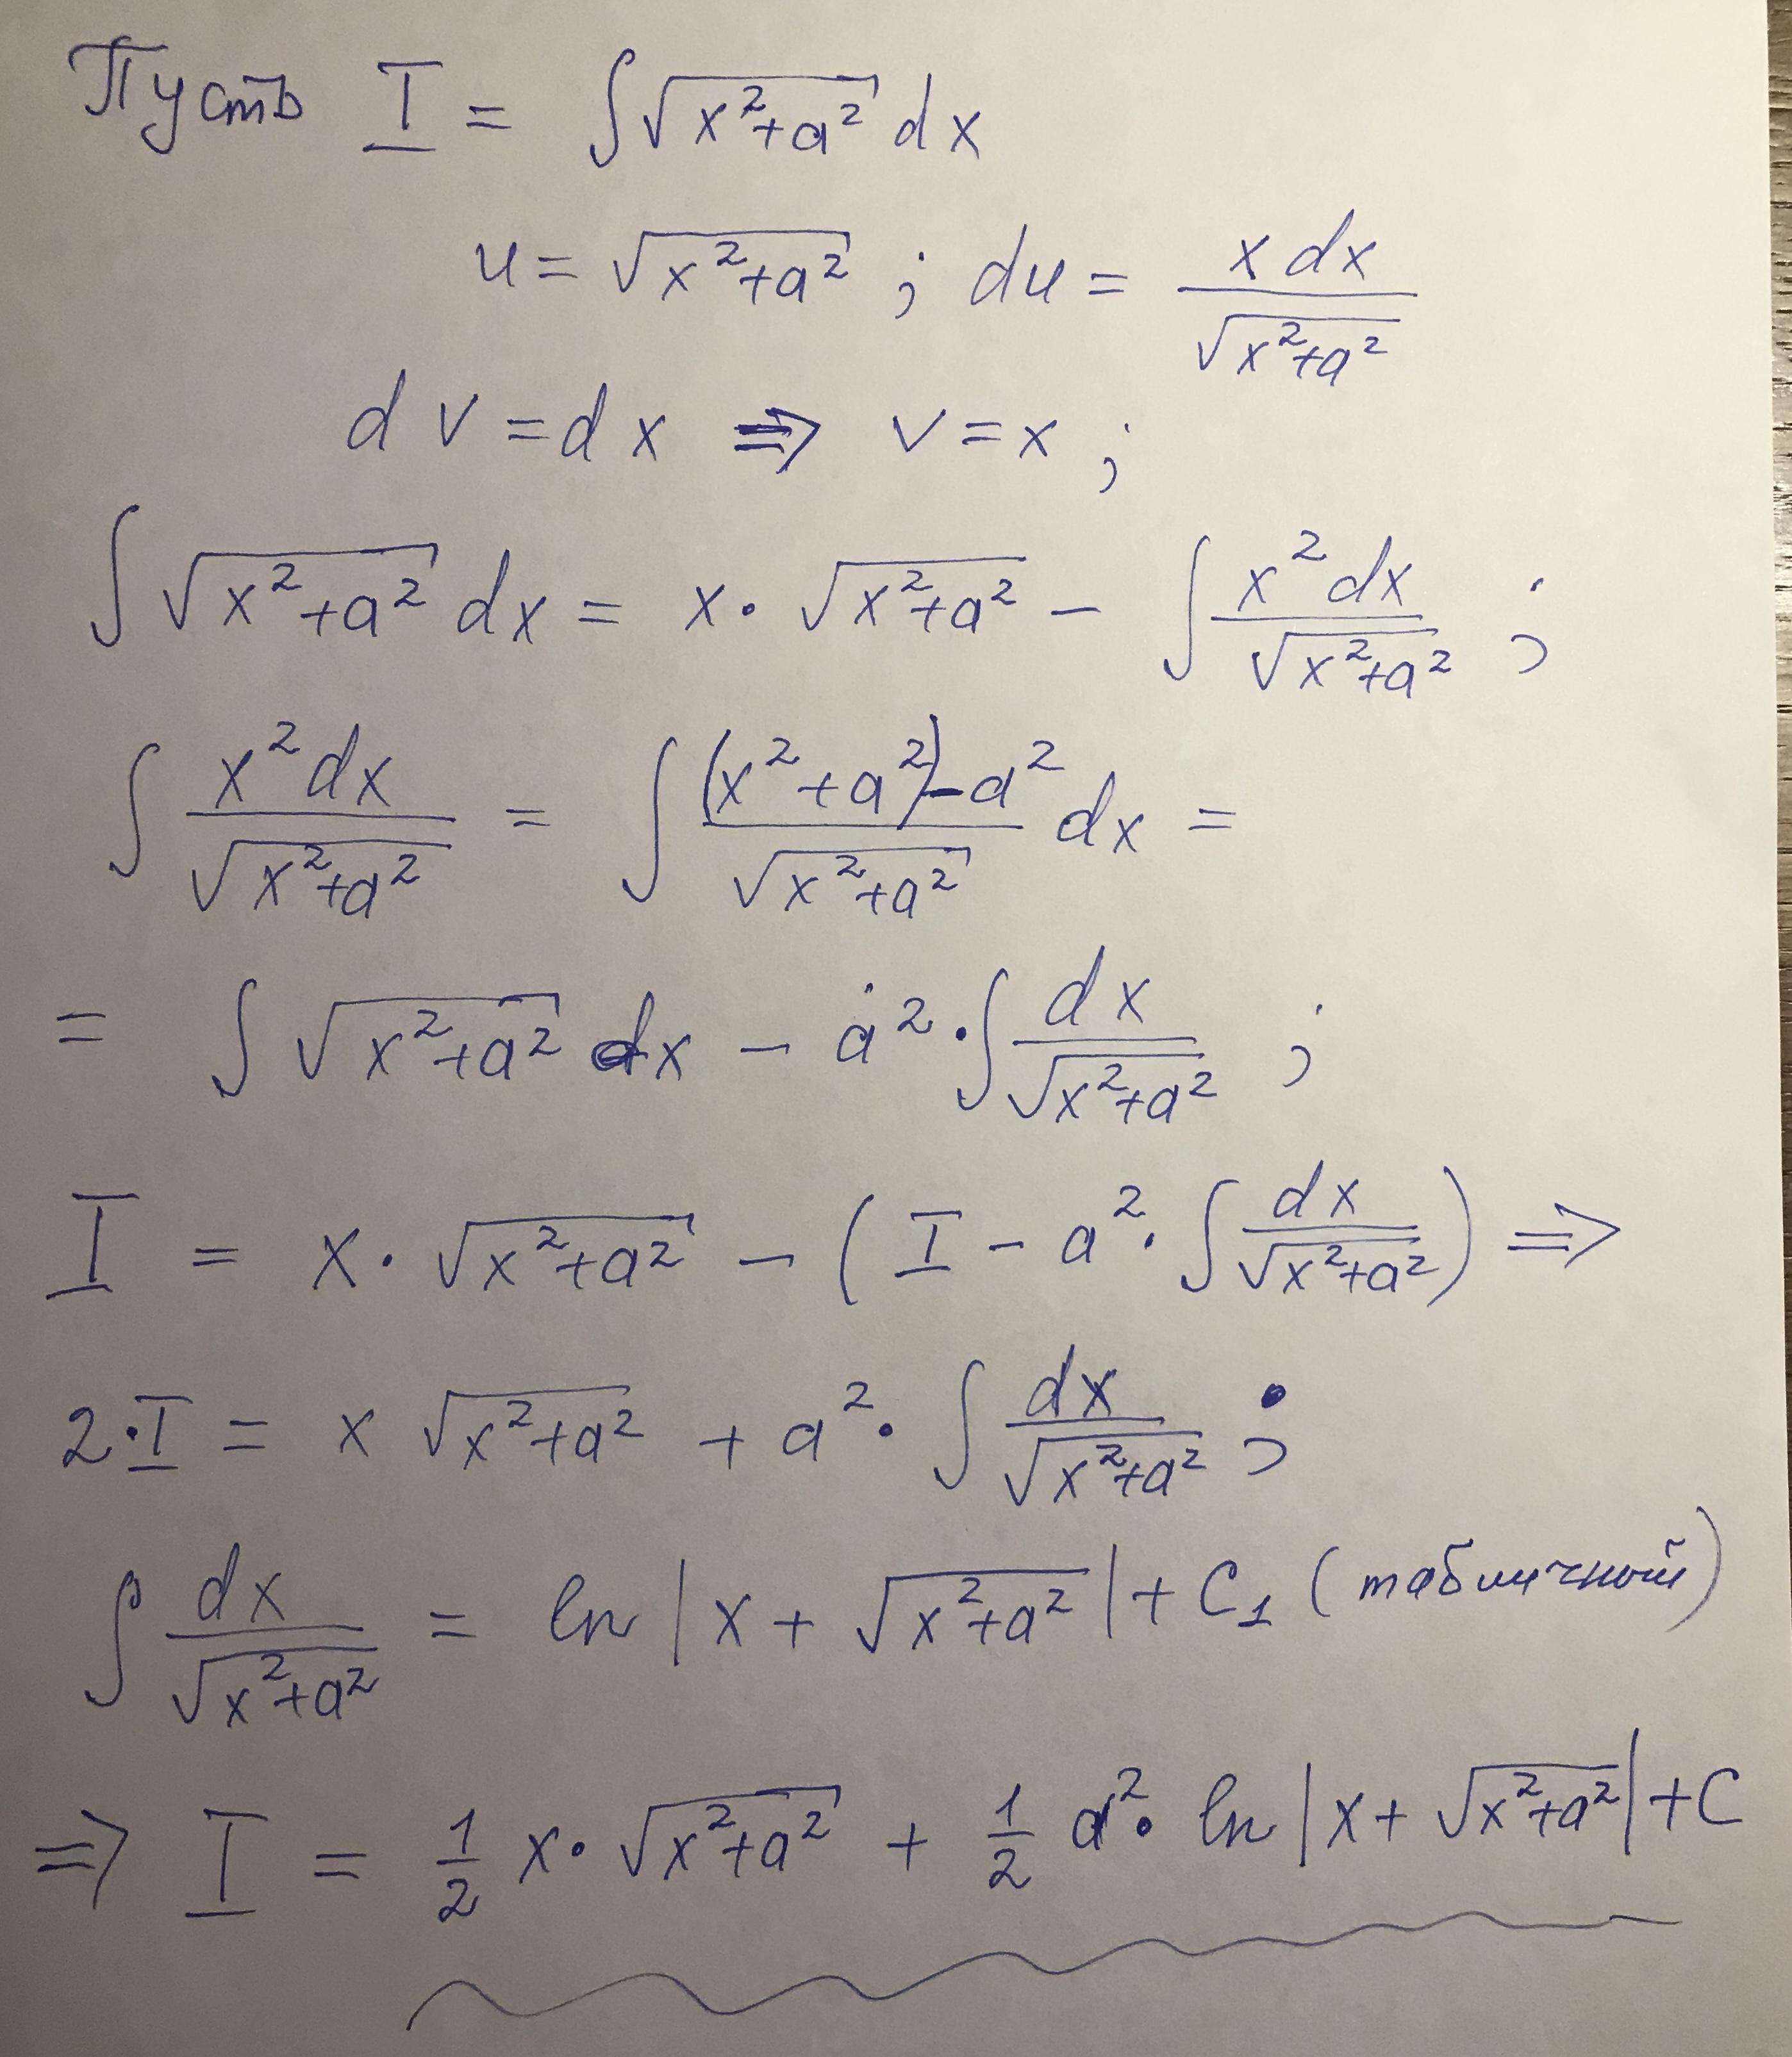 Пусть I = ∫√(x²+a²) dx
u = √(x²+a²) ; du = x dx / √(x²+a²)
dv = dx ⇒ v = x ;
∫√(x²+a²) dx = x · √(x²+a²) − ∫ x² dx / √(x²+a²) ;
∫ x² dx / √(x²+a²) = ∫ ((x²+a²)−a²) / √(x²+a²) dx =
= ∫√(x²+a²) dx − a² · ∫ dx / √(x²+a²) ;
I = x · √(x²+a²) − ( I − a² · ∫ dx / √(x²+a²) ) ⇒
2·I = x √(x²+a²) + a² · ∫ dx / √(x²+a²) ;
∫ dx / √(x²+a²) = ln |x + √(x²+a²)| + C₁ (табличный)
⇒ I = 1/2 x · √(x²+a²) + 1/2 a² · ln |x + √(x²+a²)| + C